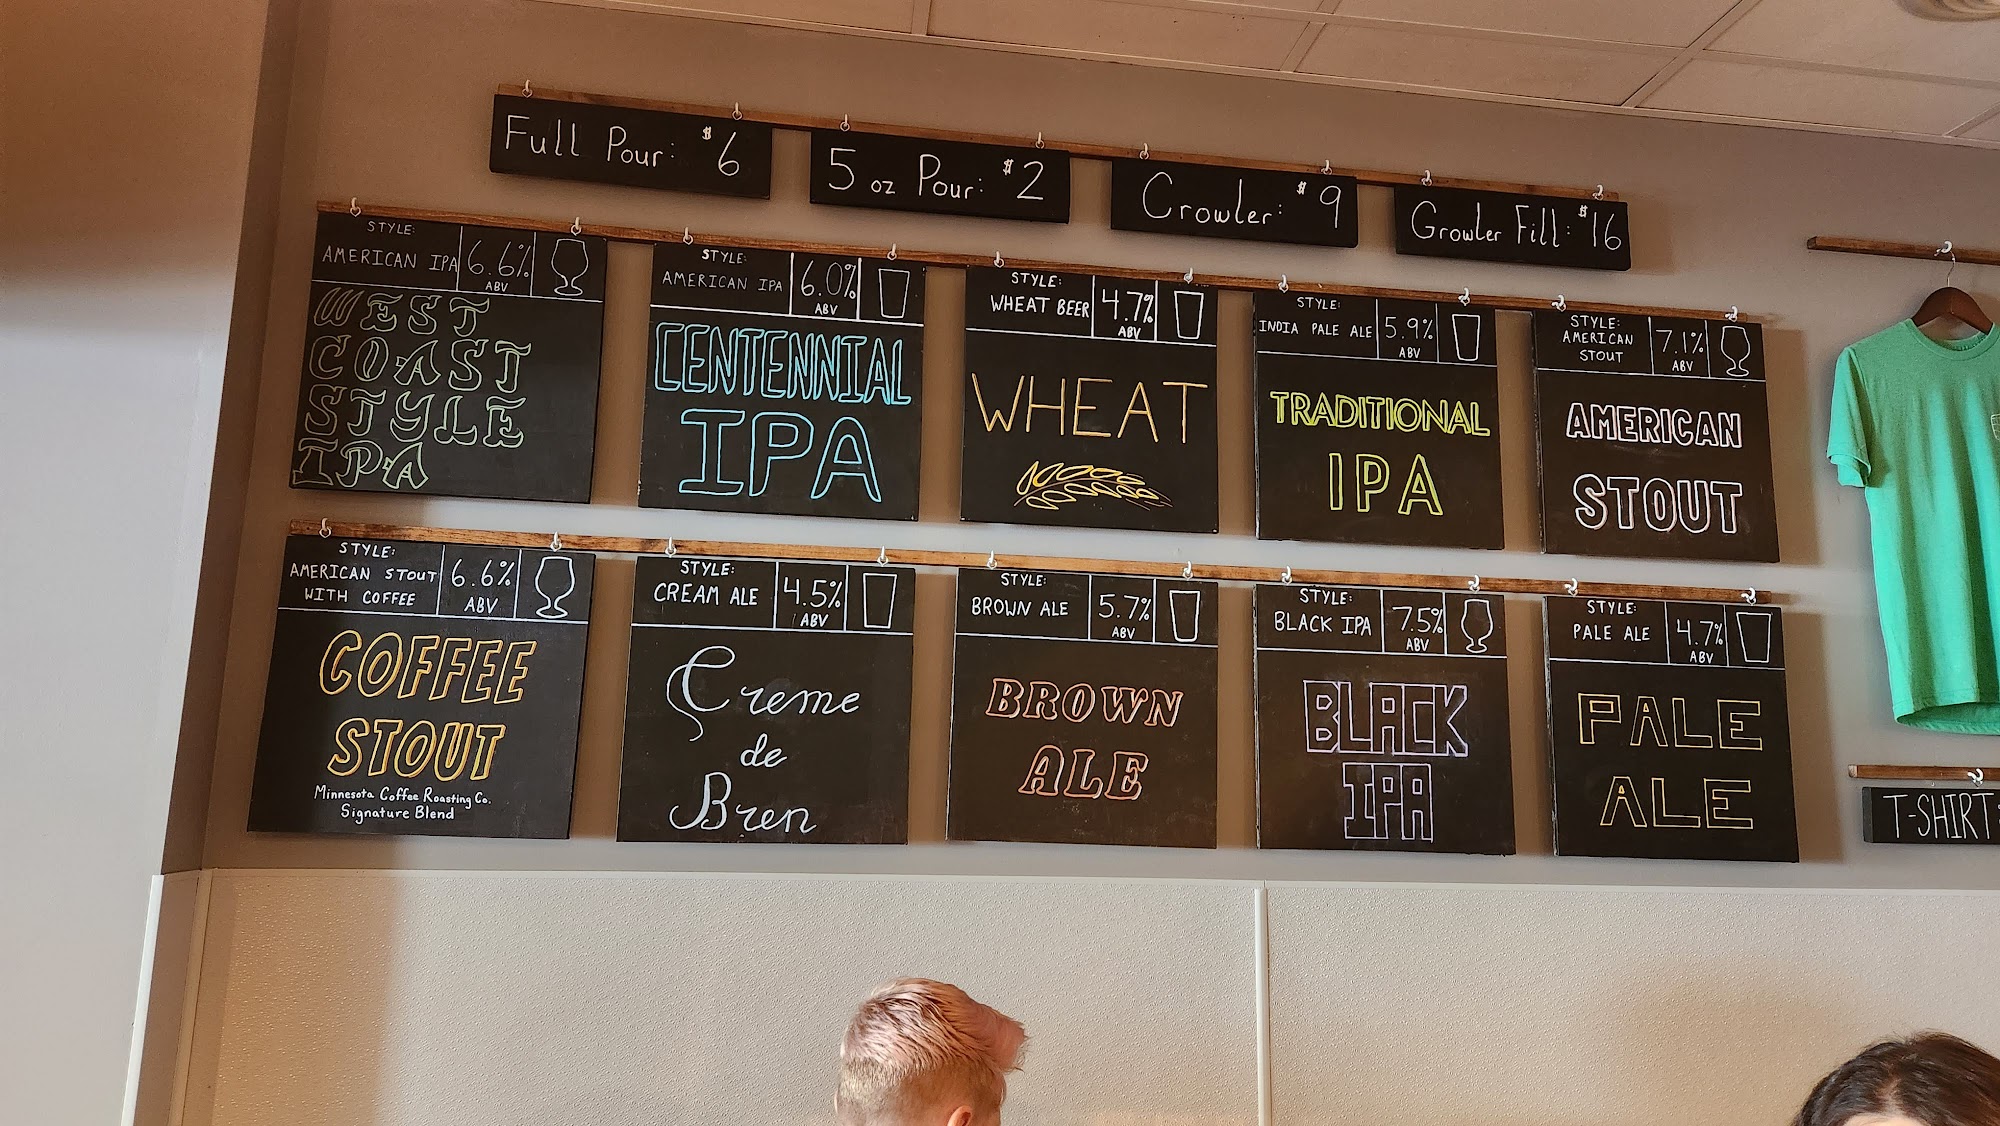 Full Pour: $6
5 oz Pour: $2
Crowler: $9
Growler Fill: $16
STYLE:
AMERICAN IPA
6.6%
ABV
WEST
COAST
STYLE
IPA
STYLE:
AMERICAN IPA
6.0%
ABV
CENTENNIAL
IPA
STYLE:
WHEAT BEER
4.7%
ABV
WHEAT
STYLE:
INDIA PALE ALE
5.9%
ABV
TRADITIONAL
IPA
STYLE:
AMERICAN
STOUT
7.1%
ABV
AMERICAN
STOUT
STYLE:
AMERICAN STOUT
WITH COFFEE
6.6%
ABV
COFFEE
STOUT
Minnesota Coffee Roasting Co.
Signature Blend
STYLE:
CREAM ALE
4.5%
ABV
Creme
de
Bren
STYLE:
BROWN ALE
5.7%
ABV
BROWN
ALE
STYLE:
BLACK IPA
7.5%
ABV
BLACK
IPA
STYLE:
PALE ALE
4.7%
ABV
PALE
ALE
T-SHIRT: